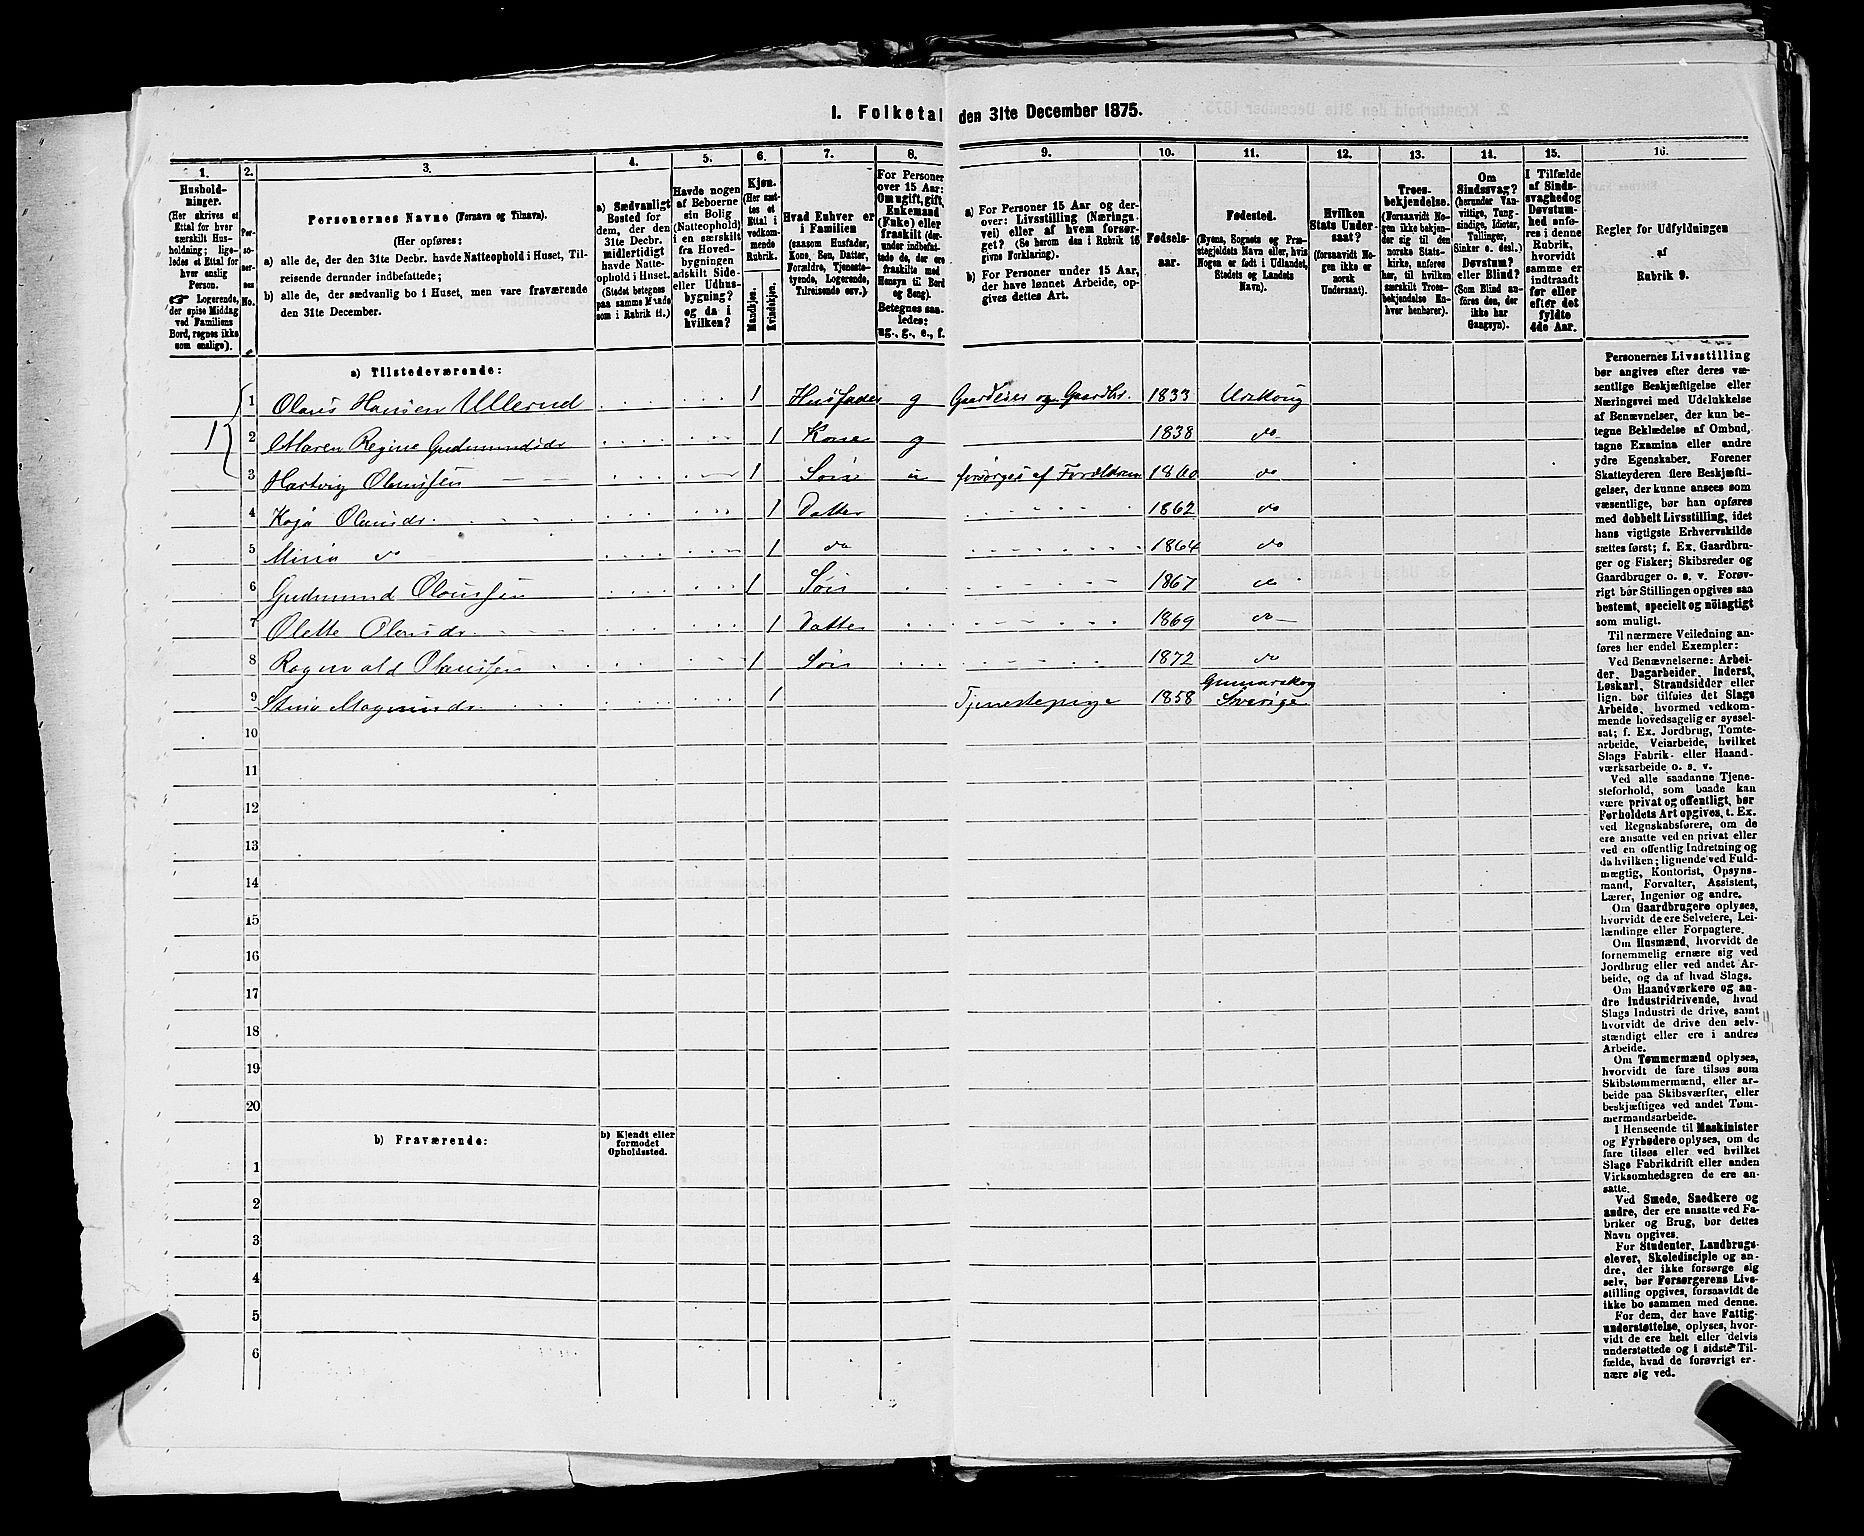 1. Folketal den 31te December 1875.
1. 2. 3. 4. 5. 6. 7. 8. 9. 10. 11. 12. 13. 14. 15. 16.
Hushold-
ninger.
(Her skrives et
Ettal for hver
særskilt Hus-
holdning; lige-
ledes et Ettal for
hver enslig
Person.
☞ Logerende,
der spise Middag
ved Familiens
Bord, regnes ikke
som enslige).
Personernes Navne (Fornavn og Tilnavn).
(Her opføres:
a) alle de, der den 31te Decbr. havde Natteophold i Huset, Til-
reisende derunder indbefattede;
b) alle de, der sædvanlig bo i Huset, men vare fraværende
den 31te December.
a) Sædvanligt
Bosted for
dem, der den
31te Decbr.
midlertidigt
havde Natte-
ophold i Huset.
(Stedet betegnes
paa samme Maade
som i Rubrik 11.)
Havde nogen
af Beboerne
sin Bolig
(Natteophold)
i en særskilt
fra Hoved-
bygningen
adskilt Side-
eller Udhus-
bygning?
og da i
hvilken?
Kjøn.
(Her sæt-
tes et
Ettal i
vedkom-
mende
Rubrik.
Mandkjøn.
Kvindekjøn.
Hvad Enhver er
i Familien
(saasom Husfader,
Kone, Søn, Datter,
Forældre, Tjeneste-
tyende, Logerende,
Tilreisende osv.)
For Personer
over 15 Aar:
Om ugift, gift,
Enkemand
(Enke) eller
fraskilt (der-
under indbefat-
tede de, der ere
fraskilte med
Hensyn til Bord
og Seng).
Betegnes saa-
ledes:
ug., g., e., f.
a) For Personer 15 Aar og der-
over: Livsstilling (Nærings-
vei) eller af hvem forsør-
get? (Se herom den i Rubrik 16
givne Forklaring).
b) For Personer under 15 Aar,
der have lønnet Arbeide, op-
gives dettes Art.
Fødsels-
aar.
Fødested.
(Byens, Sognets og Præ-
stegjeldets Navn eller, hvis
Nogen er født i Udlandet,
Stedets og Landets
Navn).
Hvilken
Stats Under-
saat?
(forsaavidt No-
gen ikke er
norsk
Undersaat).
Troes-
bekjendelse.
(Forsaavidt No-
gen ikke bekjen-
der sig til den
norske Stats-
kirke, anføres
her, til hvilken
særskilt Troes-
bekjendelse En-
hver henhører).
Om
Sindssvag?
(herunder Van-
vittige, Tung-
sindige, Idioter,
Tullinger,
Sinker o. desl.)
Døvstum?
eller Blind?
(Som Blind an-
føres den, der
ikke har
Gangsyn).
I Tilfælde
af Sinds-
svaghed og
Døvstum-
hed anfø-
res i denne
Rubrik,
hvorvidt
samme er
indtraadt
før eller
efter det
fyldte
4de Aar.
Regler for Udfyldningen
af
Rubrik 9.
a) Tilstedeværende:
1 Olaus Hansen Ullerud 1 Husfader g 1833 Urskoug
2 Maren Regine Gudmundsdr 1 Kone g 1838 do
3 Hartvig Olaussen 1 Søn u forsørges af Forældrene 1860 do
4 Kaja Olausdr. 1 Datter 1862 do
5 Mina do 1 do 1864 do
6 Gudmund Olaussen 1 Søn 1867 do
7 Olette Olausdr. 1 Datter 1869 do
8 Ragnvald Olaussen 1 Søn 1872 do
9 Stina Magnusdr. 1 Tjenestepige 1858 Gunnarskog
Sverige
10
11
12
13
14
15
16
17
18
19
20
b) Fraværende:
b) Kjendt eller
formodet
Opholdssted.
1
2
3
4
5
6
Personernes Livsstilling
bør angives efter deres væ-
sentlige Beskjæftigelse eller
Næringsvei med Udelukkelse
af Benævnelser, der kun be-
tegne Beklædelse af Ombud,
tagne Examina eller andre
ydre Egenskaber. Forener
Skatteyderen flere Beskjæfti-
gelser, der kunne ansees som
væsentlige, bør han opføres
med dobbelt Livsstilling, idet
hans vigtigste Erhvervskilde
sættes først; f. Ex. Gaardbru-
ger og Fisker; Skibsreder og
Gaardbruger o. s. v. Forøv-
rigt bør Stillingen opgives saa
bestemt, specielt og nöiagtigt
som muligt.
Til nærmere Veiledning an-
føres her endel Exempler:
Ved Benævnelserne: Arbei-
der, Dagarbeider, Inderst,
Løskarl, Strandsidder eller
lign. bør tilføies det Slags
Arbeide, hvormed vedkom-
mende hovedsagelig er syssel-
sat; f. Ex. Jordbrug, Tomte-
arbeide, Veiarbeide, hvilket
Slags Fabrik- eller Haand-
værksarbeide o. s. v.
Ved alle saadanne Tjene-
steforhold, som baade kan
være privat og offentligt, bør
Forholdets Art opgives, t. Ex.
ved Regnskabsførere, om de
ere ansatte ved en privat eller
ved en offentlig Indretning og
da hvilken; lignende ved Fuld-
mægtig, Kontorist, Opsyns-
mand, Forvalter, Assistent,
Lærer, Ingeniør og andre.
Om Gaardbrugere oplyses,
hvorvidt de ere Selveiere, Lei-
lændinge eller Forpagtere.
Om Husmænd, hvorvidt de
fornemmelig ernære sig ved
Jordbrug eller ved andet Ar-
beide, og da af hvad Slags.
Om Haandværkere og an-
dre Industridrivende, hvad
Slags Industri de drive, samt
hvorvidt de drive den selv-
stændigt eller ere i andres
Arbeide.
Om Tømmermænd oplyses,
hvorvidt de fare tilsøs som
Skibstømmermænd, eller ar-
beide paa Skibsværfter, eller
beskjæftiges ved andet Tøm-
mermandsarbeide.
I Henseende til Maskinister
og Fyrbødere oplyses, om de
fare tilsøs eller ved hvilket
Slags Fabrikdrift eller anden
Virksomhedsgren de ere an-
satte.
Ved Smede, Snedkere og
andre, der ere ansatte ved Fa-
briker og Brug, bør dettes
Navn opgives.
For Studenter, Landbrugs-
elever, Skoledisciple og an-
dre, der ikke forsørge sig
selv, bør Forsørgerens Livs-
stilling opgives, forsaavidt de
ikke bo sammen med denne.
For dem, der have Fattig-
understøttelse, oplyses, hvor-
vidt de ere helt eller delvis
understøttede og i sidste Til-
fælde, hvad de forøvrigt er-
nære sig ved.